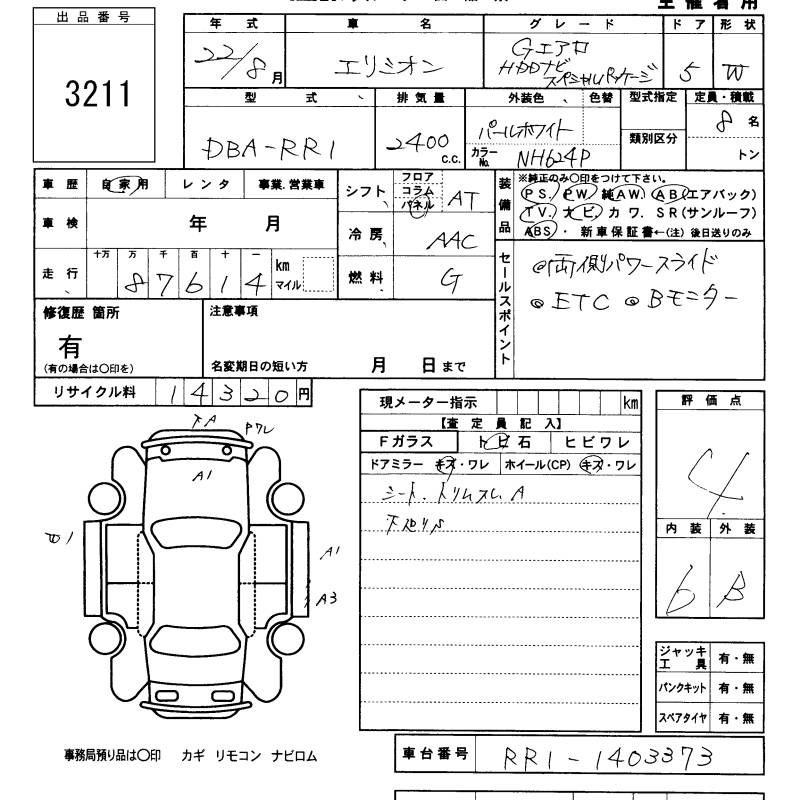 出品番号
3211
年式 車名 グレード ドア 形状
22/8月 エリシオン Gエアロ HDDナビ スペシャルパッケージ 5 W
型式 排気量 外装色 色替 型式指定 定員・積載
DBA-RR1 2400 c.c. パールホワイト 類別区分 8名
カラーNo. NH624P トン
車歴 自家用 レンタ 事業.営業車 シフト フロア コラム パネル AT
装備品 ※純正のみ〇印をつけて下さい。
PS. PW. 純AW. AB(エアバック)
TV. ナビ. カワ. SR(サンルーフ)
ABS. ・新車保証書←(注) 後日送りのみ
車検 年 月 冷房 AAC
走行 十万 万 千 百 十 一
87614 km マイル 燃料 G
セールスポイント
◎両側パワースライド
◎ETC ◎Bモニター
修復歴 箇所
有
(有の場合は〇印を)
注意事項
名変期日の短い方 月 日まで
リサイクル料 14320円
現メーター指示 km
【査定員記入】
Fガラス トビ石 ヒビワレ
ドアミラー キズ・ワレ ホイール(CP) キズ・ワレ
シート、トリムスレA
評価点
4
内装 外装
6 B
A1
A1
A3
ジャッキ工具 有・無
パンクキット 有・無
スペアタイヤ 有・無
事務局預り品は〇印 カギ リモコン ナビロム
車台番号 RR1-1403373